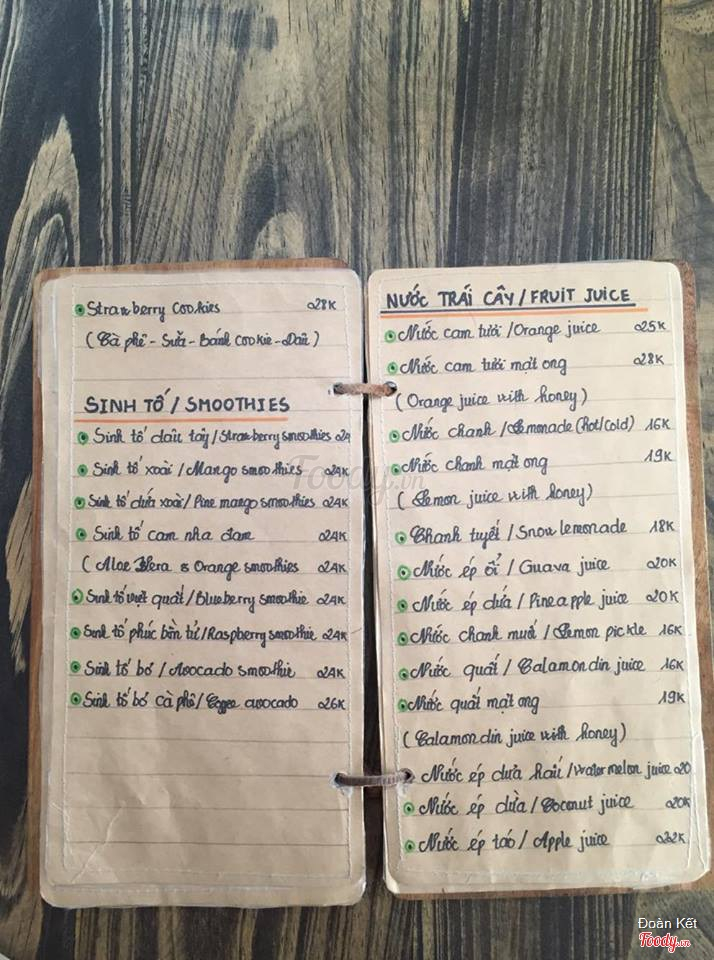 Strawberry Cookies 28K
(Cà phê - Sữa - Bánh Cookie - Dâu)
SINH TỐ / SMOOTHIES
Sinh tố dâu tây / Strawberry smoothies 24
Sinh tố xoài / Mango smoothies 24K
Sinh tố dứa xoài / Pine mango smoothies 24K
Sinh tố cam nha đam 24K
(Aloe Vera & Orange smoothies 24K
Sinh tố việt quất / Blueberry smoothie 24K
Sinh tố phúc bồn tử / Raspberry smoothie 24K
Sinh tố bơ / Avocado smoothie 24K
Sinh tố bơ cà phê / Coffee avocado 26K
NƯỚC TRÁI CÂY / FRUIT JUICE
Nước cam tươi / Orange juice 25K
Nước cam tươi mật ong 28K
(Orange juice with honey)
Nước chanh / Lemonade (hot/cold) 16K
Nước chanh mật ong 19K
(Lemon juice with honey)
Chanh tuyết / Snow lemonade 18K
Nước ép ổi / Guava juice 20K
Nước ép dứa / Pineapple juice 20K
Nước chanh muối / Lemon pickle 16K
Nước quất / Calamondin juice 16K
Nước quất mật ong 19K
(Calamondin juice with honey)
Nước ép dưa hấu / Watermelon juice 20
Nước ép dừa / Coconut juice 20K
Nước ép táo / Apple juice 22K
Foody.vn
Đoàn Kết
Foody.vn